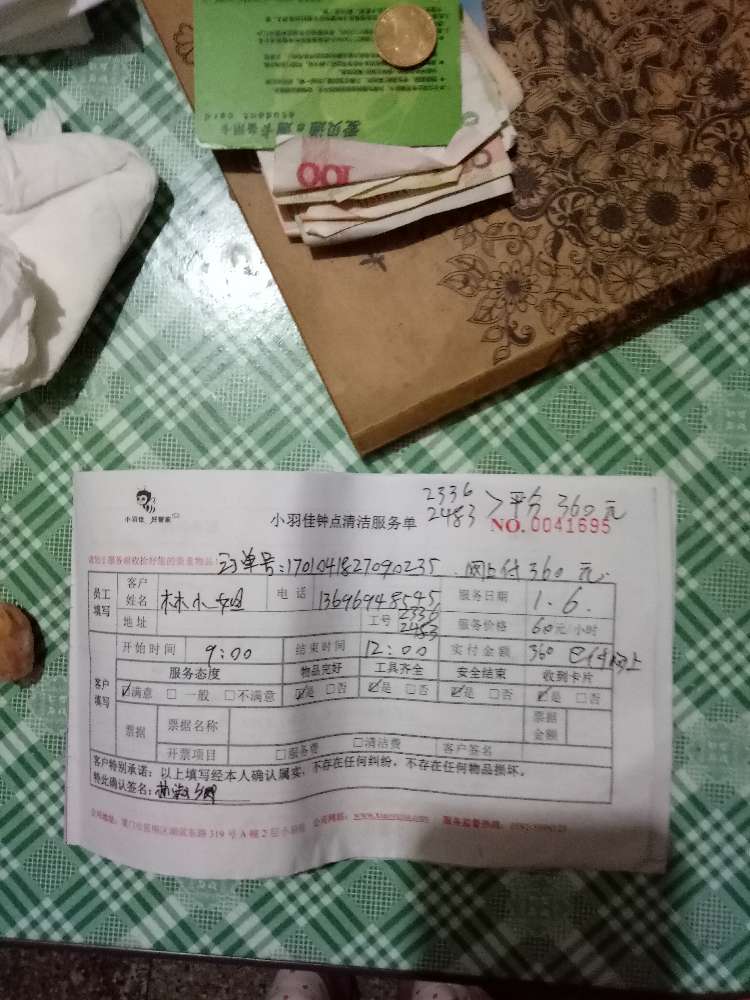 爱贝通e通卡备用卡
student card
100
小羽佳 好管家
小羽佳钟点清洁服务单
2336
2483 > 平分 360元
NO. 0041695
订单号:1701041827090235 网上付 360 元.
员工填写 客户姓名 林小姐 电话 13696948545 服务日期 1.6.
地址 工号 2336 2483 服务价格 60元/小时
客户填写 开始时间 9:00 结束时间 12:00 实付金额 360 已付网上
服务态度 物品完好 工具齐全 安全结束 收到卡片
☑满意 □一般 □不满意 ☑是 □否 ☑是 □否 ☑是 □否 ☑是 □否
票据 票据名称 票据金额
开票项目 □服务费 □清洁费 客户签名
客户特别承诺:以上填写经本人确认属实,不存在任何纠纷,不存在任何物品损坏。
特此确认签名:
319号A幢2层小羽佳 公司网站: 服务监督热线: